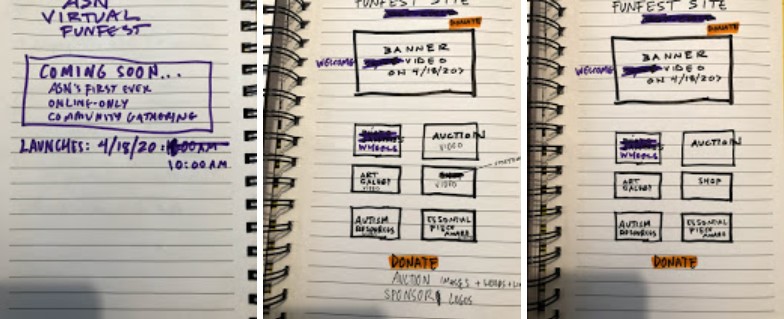 ASN
VIRTUAL
FUNFEST
COMING SOON...
ASN'S FIRST EVER
ONLINE-ONLY
COMMUNITY GATHERING
LAUNCHES: 4/18/20:
10:00 AM
FUNFEST SITE
DONATE
BANNER
WELCOME VIDEO
ON 4/18/20?
WHEELS
AUCTION
VIDEO
ART
GALLERY
VIDEO
VIDEO
AUTISM
RESOURCES
ESSENTIAL
PIECE
AWARD
DONATE
AUCTION IMAGES +
SPONSOR LOGOS
FUNFEST SITE
DONATE
BANNER
WELCOME VIDEO
ON 4/18/20?
WHEELS
AUCTION
ART
GALLERY
SHOP
AUTISM
RESOURCES
ESSENTIAL
PIECE
AWARD
DONATE